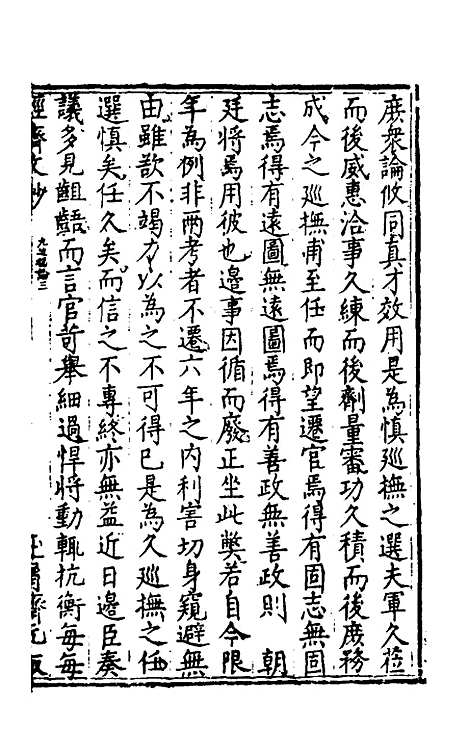 庶衆論攸同真才效用是為慎廵撫之選夫軍久蒞
而後威惠洽事久練而後劑量審功久積而後庶務
成今之廵撫甫至任而即望遷官焉得有固志無固
志焉得有遠圖無遠圖焉得有善政無善政則　朝
廷將焉用彼也邊事因循而廢正坐此獘若自今限
年為例非兩考者不遷六年之内利害切身窺避無
由雖欲不竭力以為之不可得已是為久廵撫之任
選慎矣任久矣而信之不專終亦無益近日邊臣奏
議多見齟齬而言官苛舉細過悍將動輒抗衡每每
經濟文鈔